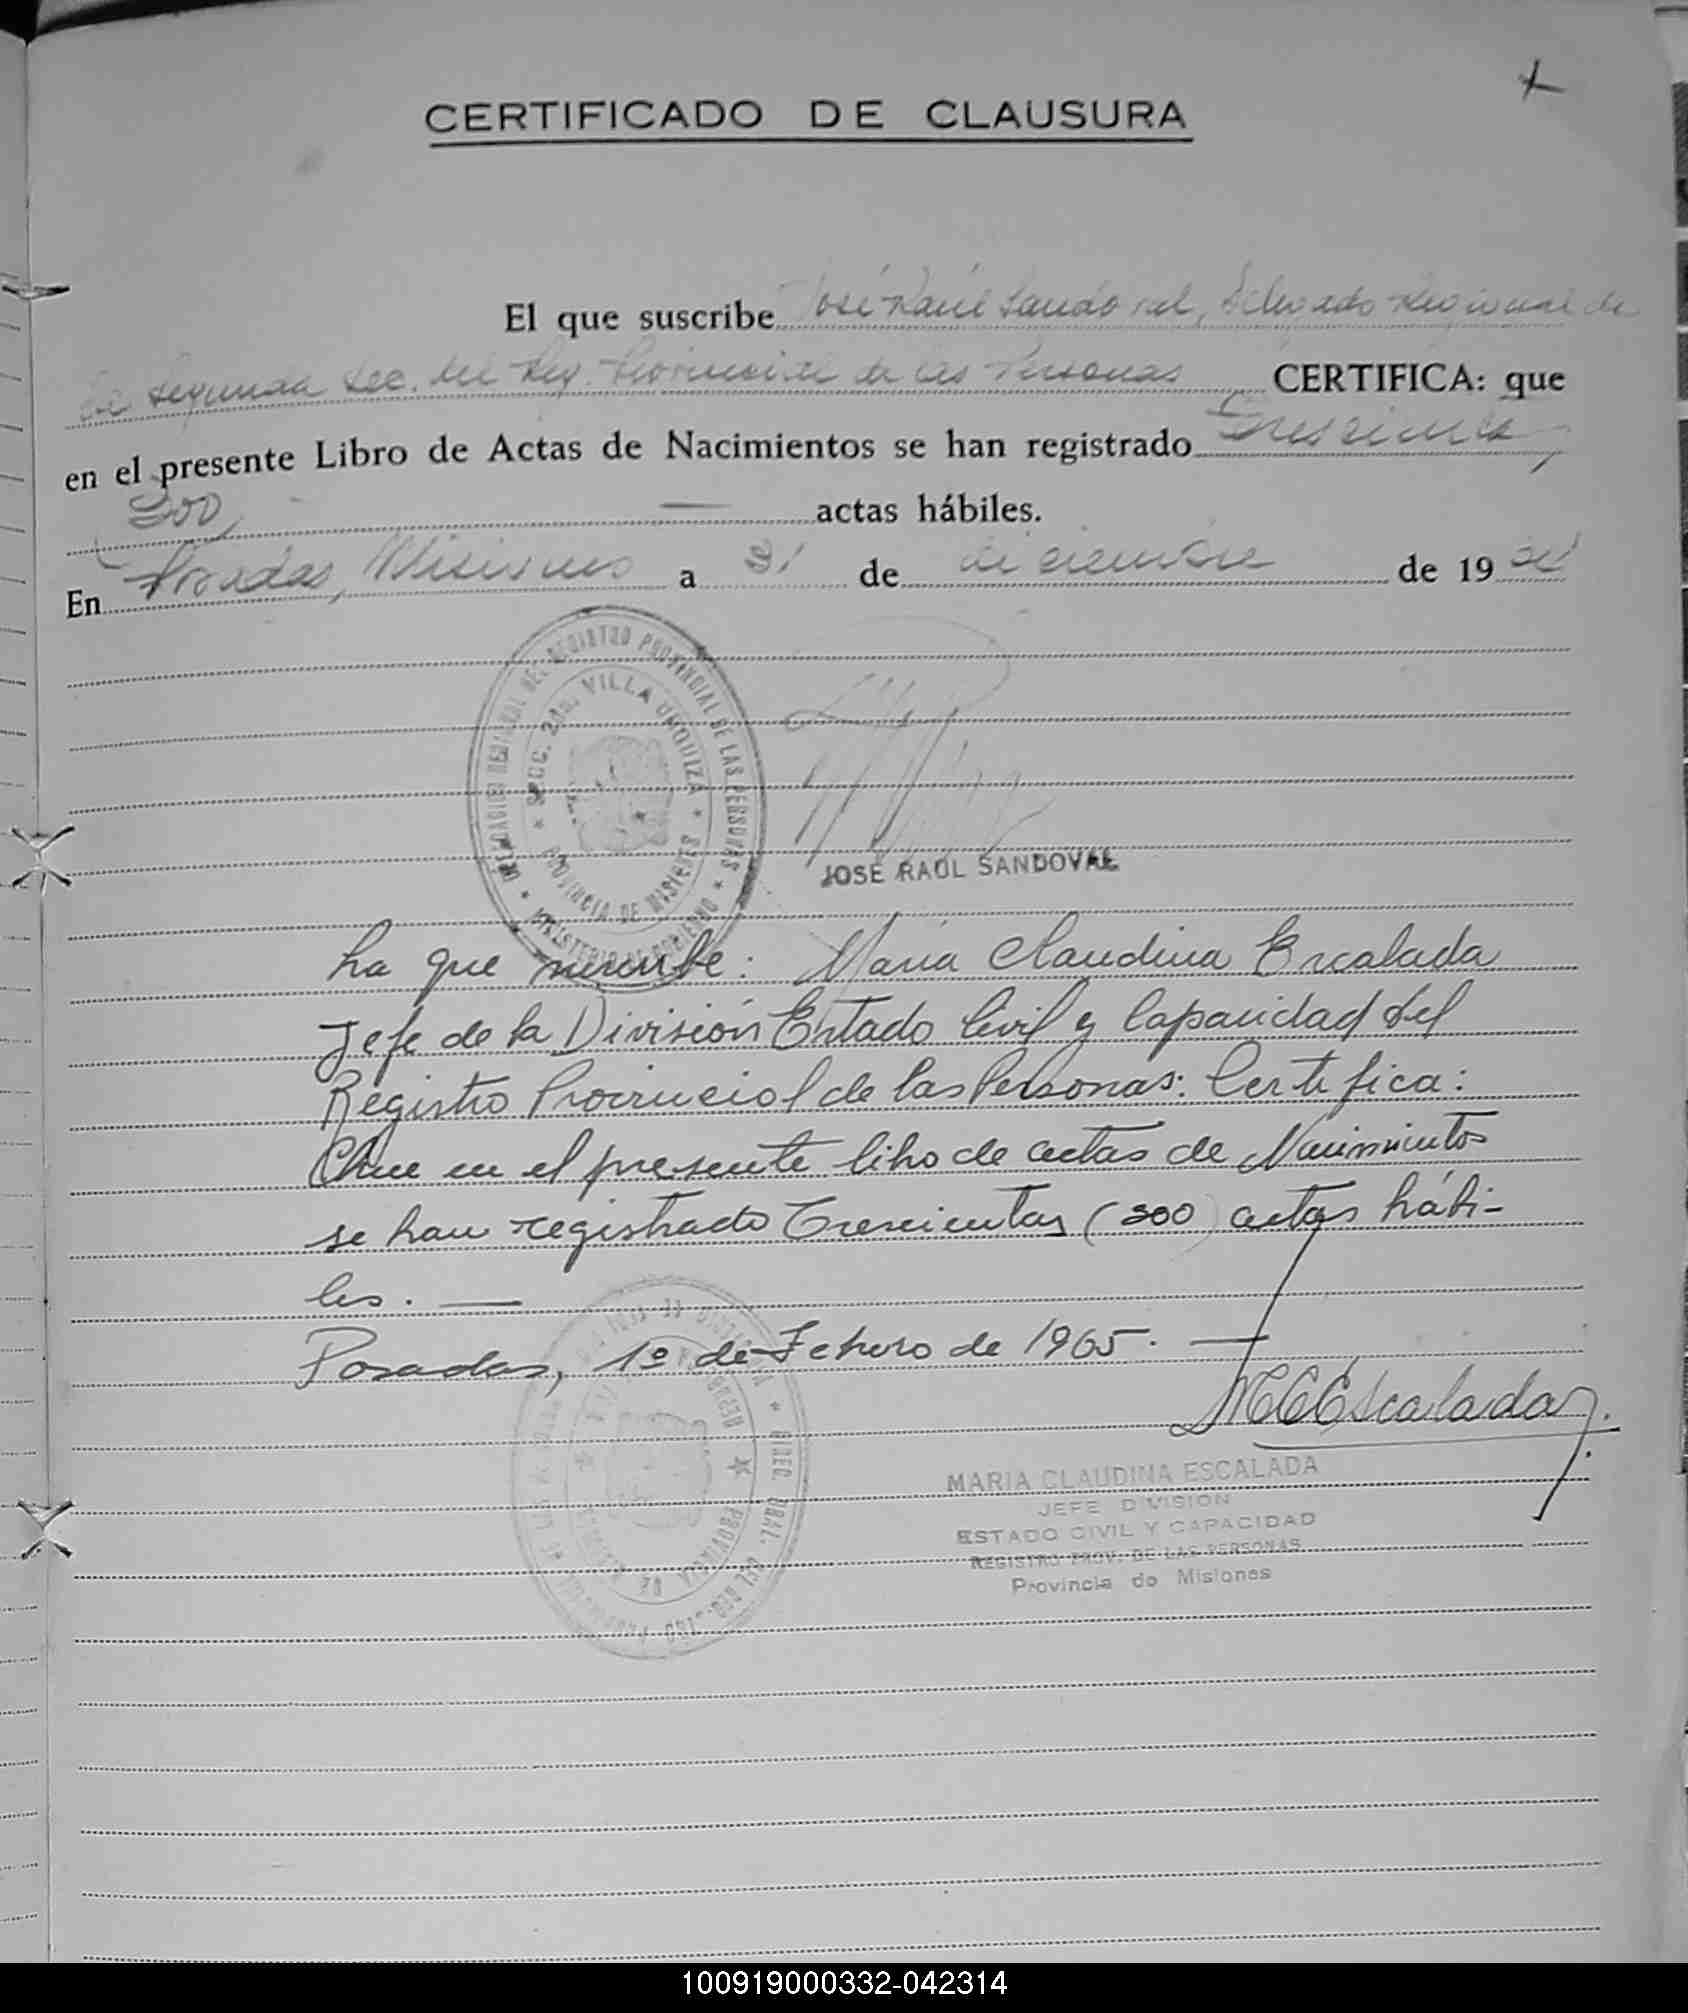 CERTIFICADO DE CLAUSURA
El que suscribe José Raúl Sandoval, Delegado Regional de
la Segunda Sec. del Reg. Provincial de las Personas CERTIFICA: que
en el presente Libro de Actas de Nacimientos se han registrado Trescientas
300 actas hábiles.
En Posadas, Misiones a 31 de diciembre de 19
DELEGACION REGIONAL DEL REGISTRO PROVINCIAL DE LAS PERSONAS * MINISTERIO DE GOBIERNO *
SECC. 2da. VILLA URQUIZA * PROVINCIA DE MISIONES *
JOSE RAUL SANDOVAL
La que suscribe: María Claudina Escalada
Jefe de la División Estado Civil y Capacidad del
Registro Provincial de las Personas: Certifica:
Que en el presente libro de actas de Nacimientos
se han registrado Trescientas (300) actas hábi-
les.
Posadas, 1º de Febrero de 1965.
MCEscalada
MARIA CLAUDINA ESCALADA
JEFE DIVISION
ESTADO CIVIL Y CAPACIDAD
REGISTRO PROV. DE LAS PERSONAS
Provincia de Misiones
100919000332-042314